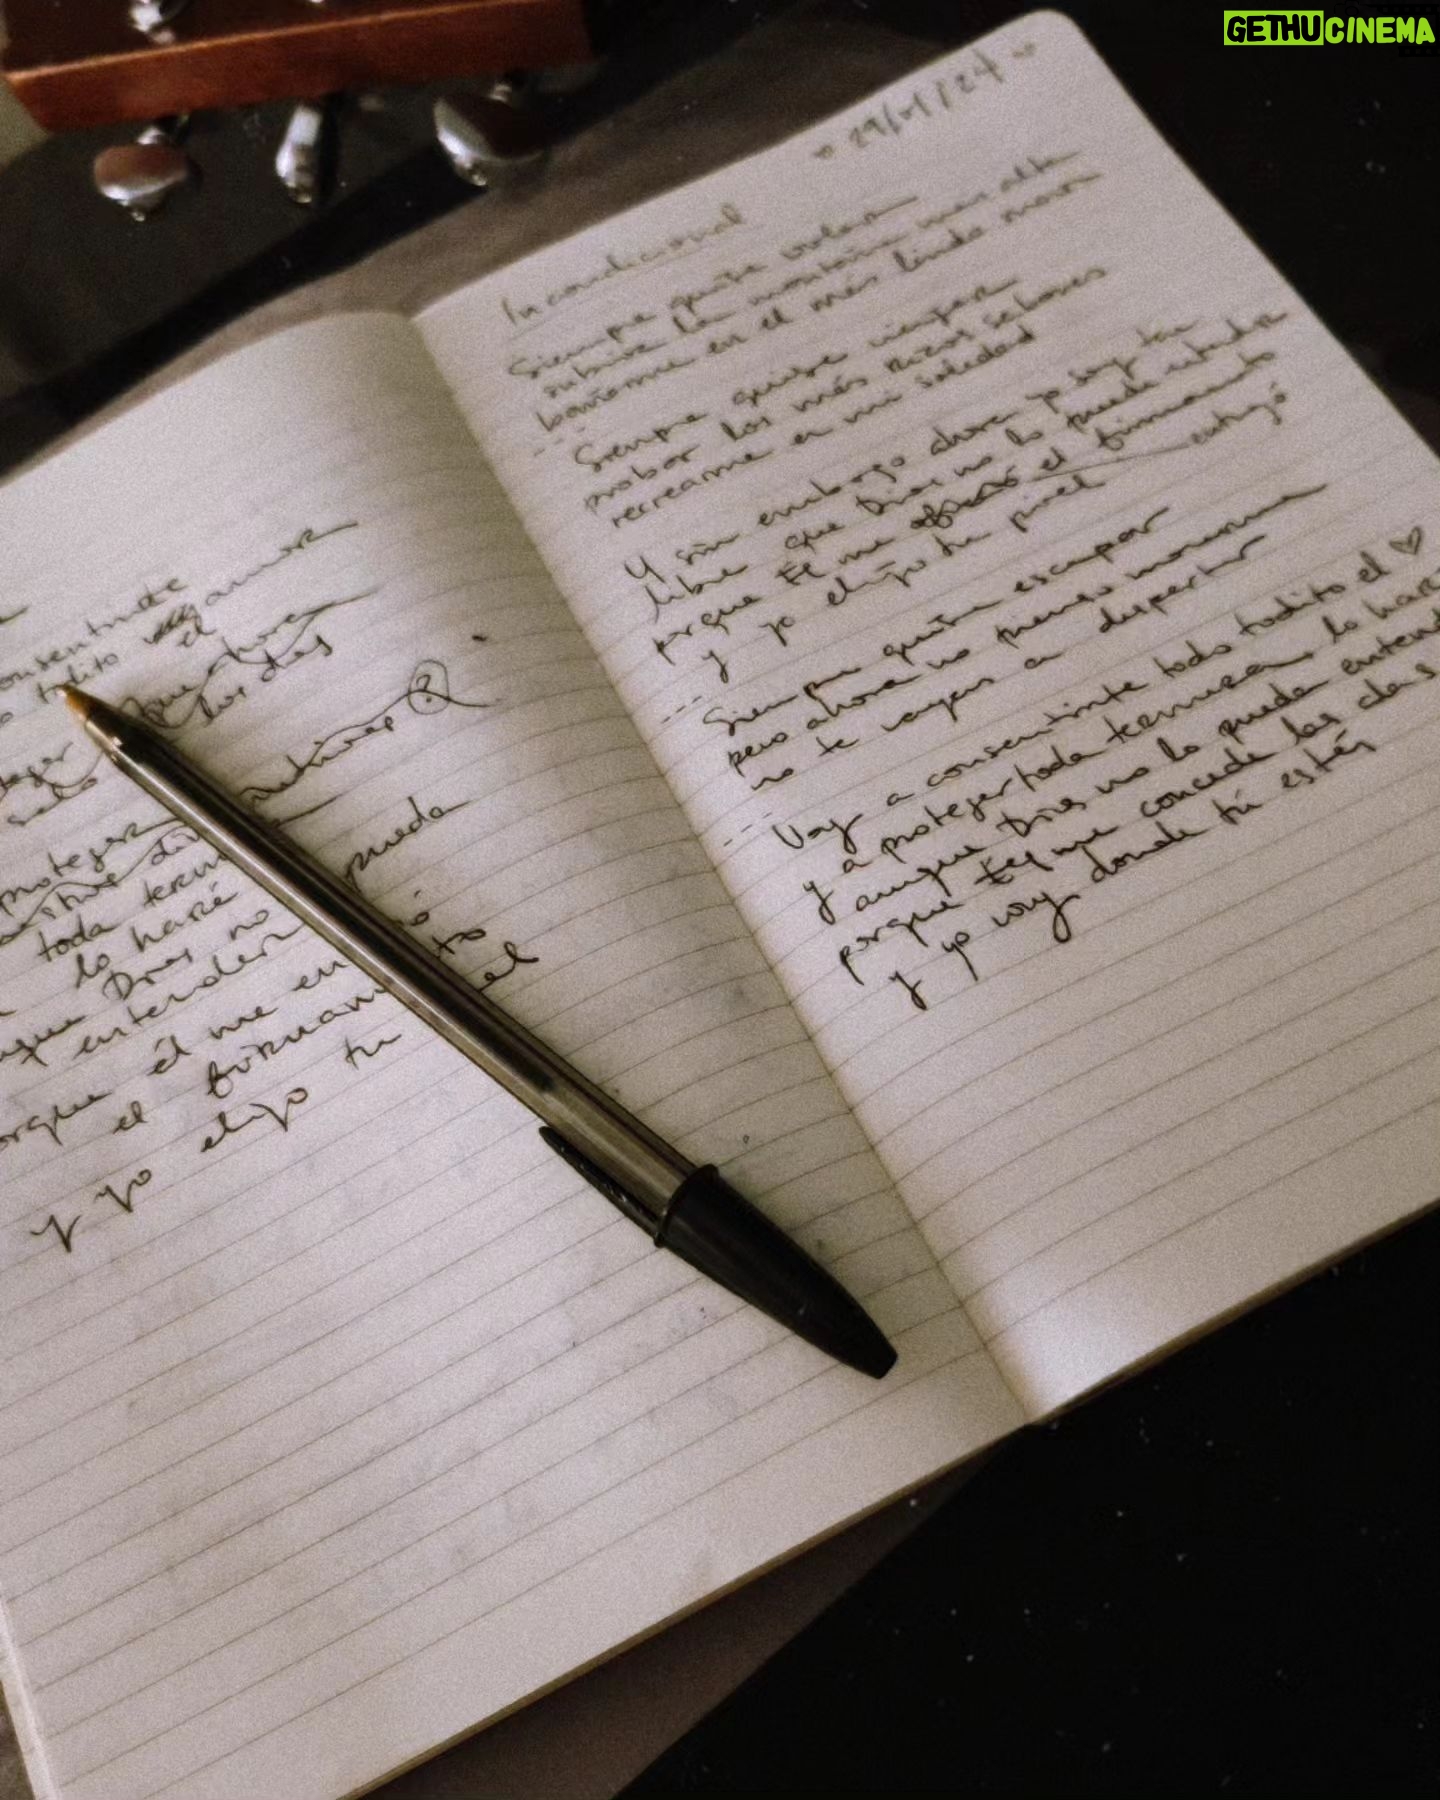 GETHUCINEMA
onsentirte
todito el amor
que
los des
?
proteger
toda
lo haré
Dios no pueda
entender
porque él me en ó
el to
y yo elijo tu el
29/01/24
Incondicional
Siempre quise volar
subirme la montaña mas alta
bañarme en el más lindo mar
Siempre quise viajar
probar los más ricos sabores
recrearme en mi soledad
Y sin embargo ahora yo soy tan
libre que Dios no lo puede entender
porque Él me el firmamento
entregó
y yo elijo tu piel
Siempre quise escapar
pero ahora no pienso moverme
no te vayas a despertar
Voy a consentirte todo todito el ♡
y a proteger toda ternura, lo haré
aunque Dios no lo pueda entend
porque Él me concede las alas
y yo voy donde tú estés